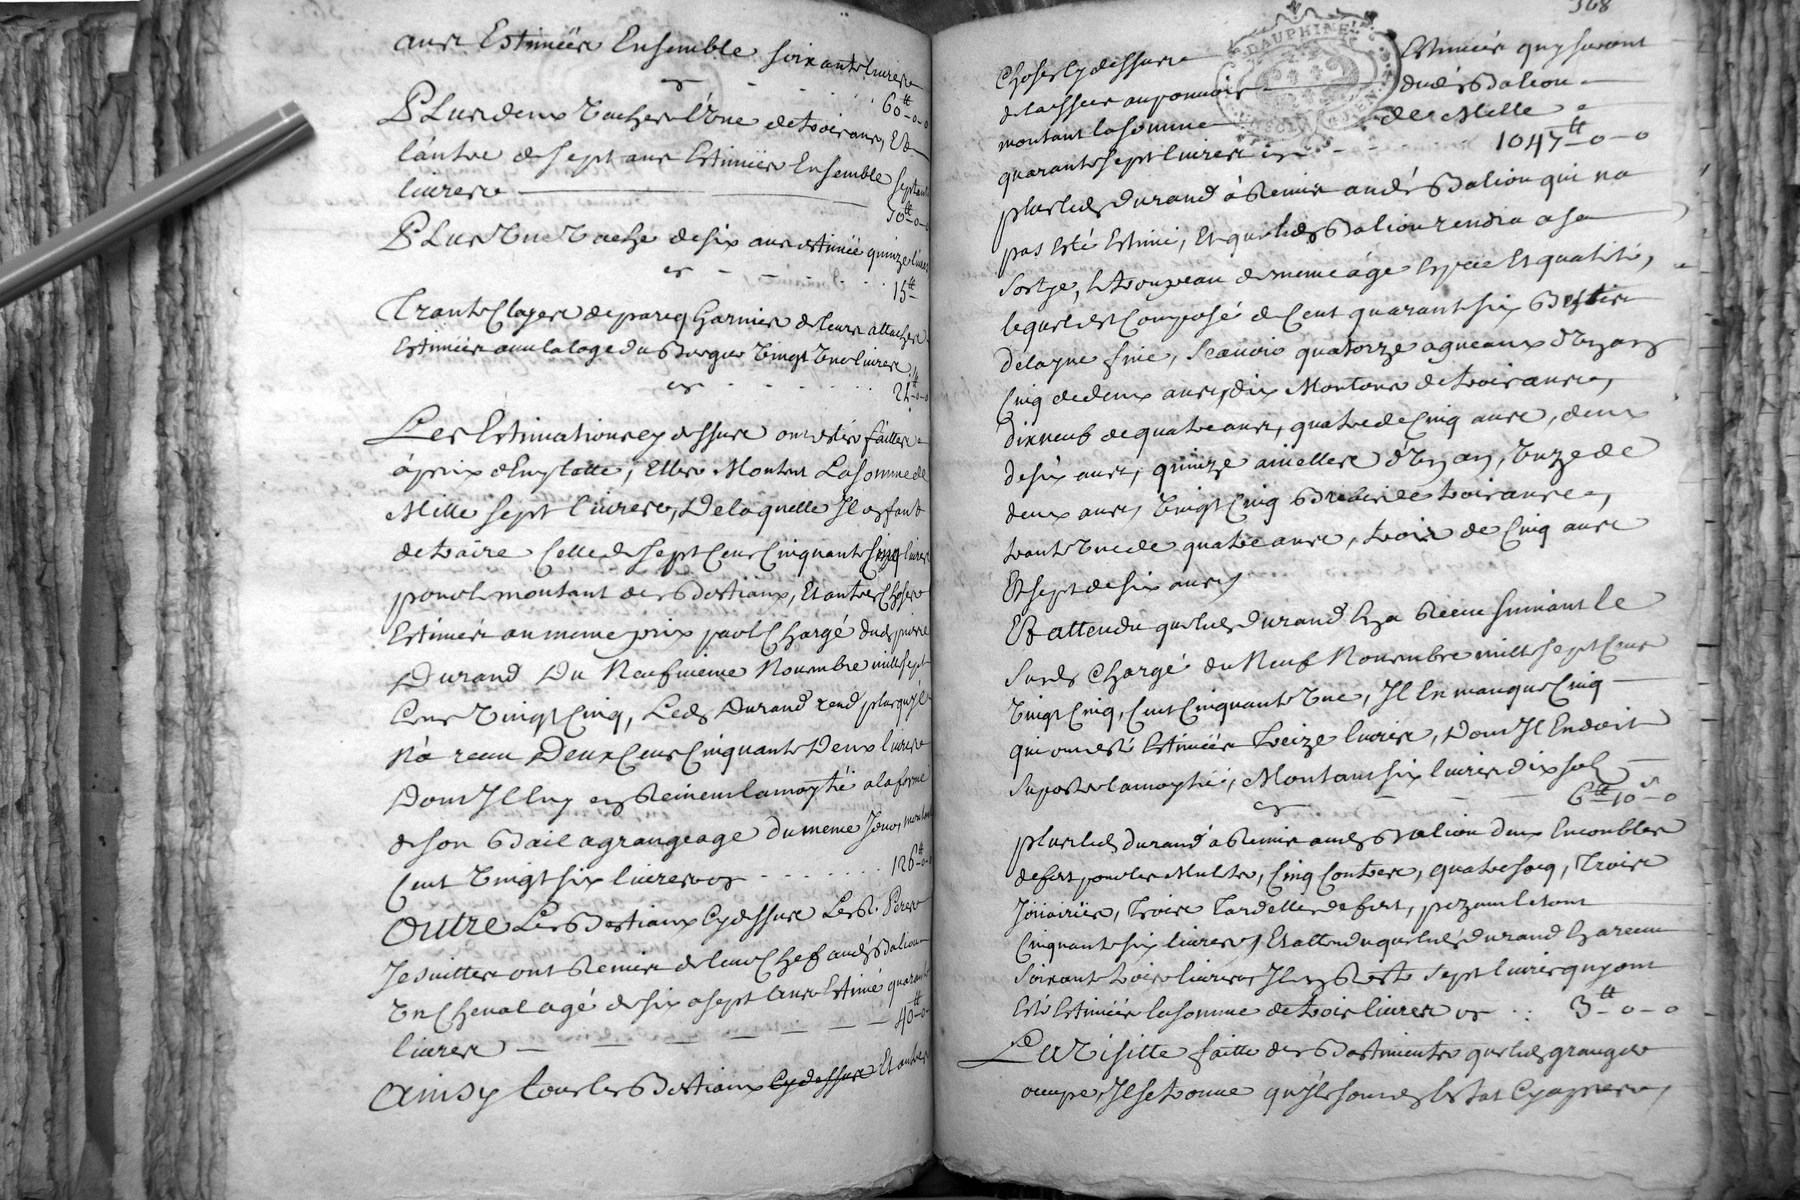 ans Estimées Ensemble soixante livres
cy . . . . 60₶-0-0
Plus deux vaches l'Une de trois ans, Et
l'autre de sept ans Estimées Ensemble septante
livres 70₶-0-0
Plus Une Vache de six ans estimée quinze livres
cy - - - . . 15₶
Trante Clayes de parcq garnies de leurs attaches
Estimées avec la loge du Berger Vingt Une livres
cy . . . . . 21₶-0-0
Les Estimations cy dessus ont estés faittes
à prix d'Enquitatte, Elles Montent La somme de
Mille sept livres, De laquelle Il en faut
detraire Celle de sept Cens Cinquante Cinq livres
pour le montant des Bestiaux, Et autres Choses
Estimées au meme prix par le Chargé dud. pierre
Durand Du Neufvieme Novembre mille sept
Cens Vingt Cinq, Led. Durand rend plus qu'Il
N'a receu Deux Cens Cinquante Deux livres
Dont Il luy en Revient la moytié a la forme
de son Bail a grangeage du meme Jour, montant
Cent Vingt six livres cy . . . . . . . . 126₶-0-0
Outre Les Bestiaux Cy dessus Les R. Peres
Jesuittes ont Remis de leur Chef aud. Balion
Un Cheval agé de six a sept Ans Estimé quarante
livres 40₶-0-0
Ainsy tous les Bestiaux Cy dessus Et autres
368
DAUPHINE
Choses Cy dessus Estimées qui seront
delaissées au pouvoir dud. Balion
montant la somme de Mille
quarante sept livres cy - - - 1047₶-0-0
plus led. Durand à Remis aud. Balion qui na
pas Esté Estimé, Et que led. Balion rendra a sa
Sortye, le troupeau de meme âge Espece Et qualité,
lequel est Composé de Cent quarante six Bestes
de layne fine, Scavoir quatorze agneaux d'Un an,
Cinq de deux ans, dix Moutons de trois ans,
dix neuf de quatre ans, quatre de Cinq ans, deux
de six ans, quinze anielles d'Un an, Unze de
deux ans, Vingt Cinq Brebis de trois ans,
trante Une de quatre ans, trois de Cinq ans
Et sept de six ans,
Et attendu que led. Durand En a Receu suivant le
Susd. Chargé du Neuf Novembre mille sept Cens
Vingt Cinq, Cent Cinquante Une, Il En manque Cinq
qui ont esté Estimées treize livres, Dont Il En doit
Suporter la moytié, Montant six livres dix sols
cy - - - 6₶-10ˢ-0
plus led. Durand à Remis aud. Balion deux Encoubles
de fert pour les Mulets, Cinq Coutres, quatre socq, Trois
Joüairies, Trois Tardelles de fert, pezant le tout
Cinquante six livres, Et attendu que led. Durand En a receu
Soixante trois livres Il En Reste sept livres qui ont
Esté Estimées la somme de trois livres cy . . : 3₶-0-0
La Visitte faitte des Bastiments que led. granger
ocupe, Il se trouve qu'Ils sont En l'Estat Cy apres,